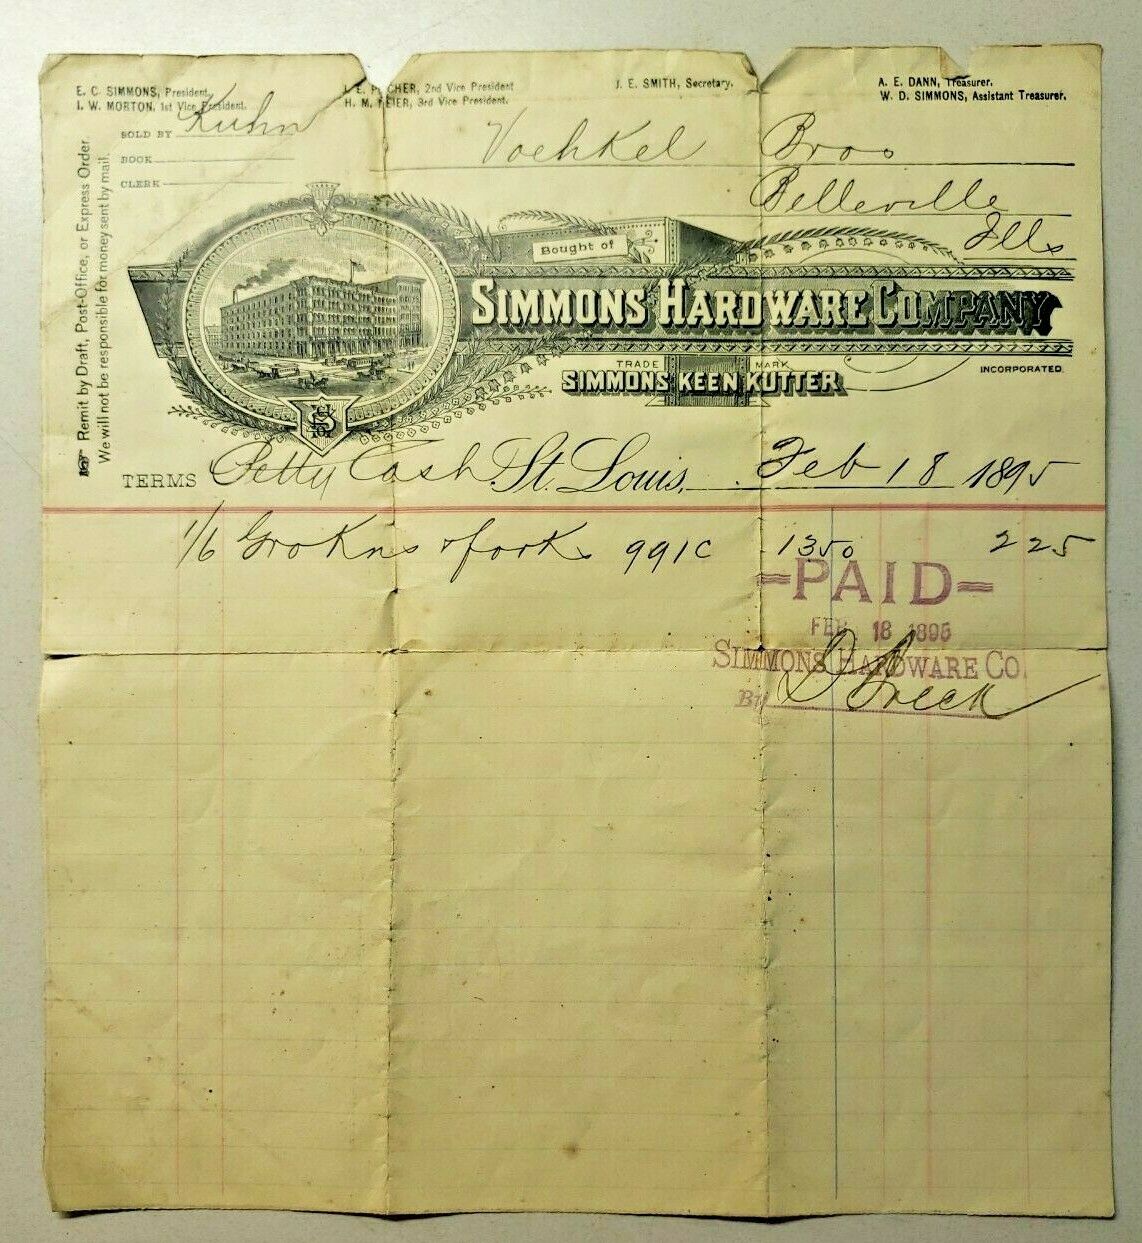 E. C. SIMMONS, President.
I. W. MORTON, 1st Vice President.
2nd Vice President
H. M. MEIER, 3rd Vice President.
J. E. SMITH, Secretary.
A. E. DANN, Treasurer.
W. D. SIMMONS, Assistant Treasurer.
SOLD BY Kuhn
BOOK
CLERK
Remit by Draft, Post-Office, or Express Order
We will not be responsible for money sent by mail.
Voehkel Bros
Belleville
Ills
Bought of
SIMMONS HARDWARE COMPANY
INCORPORATED.
TRADE MARK
SIMMONS KEEN KUTTER
TERMS Petty Cash St. Louis, Feb 18 1895
1/6 Gro Kns & forks 991C 1350 225
PAID
FEB 18 1895
SIMMONS HARDWARE CO.
By